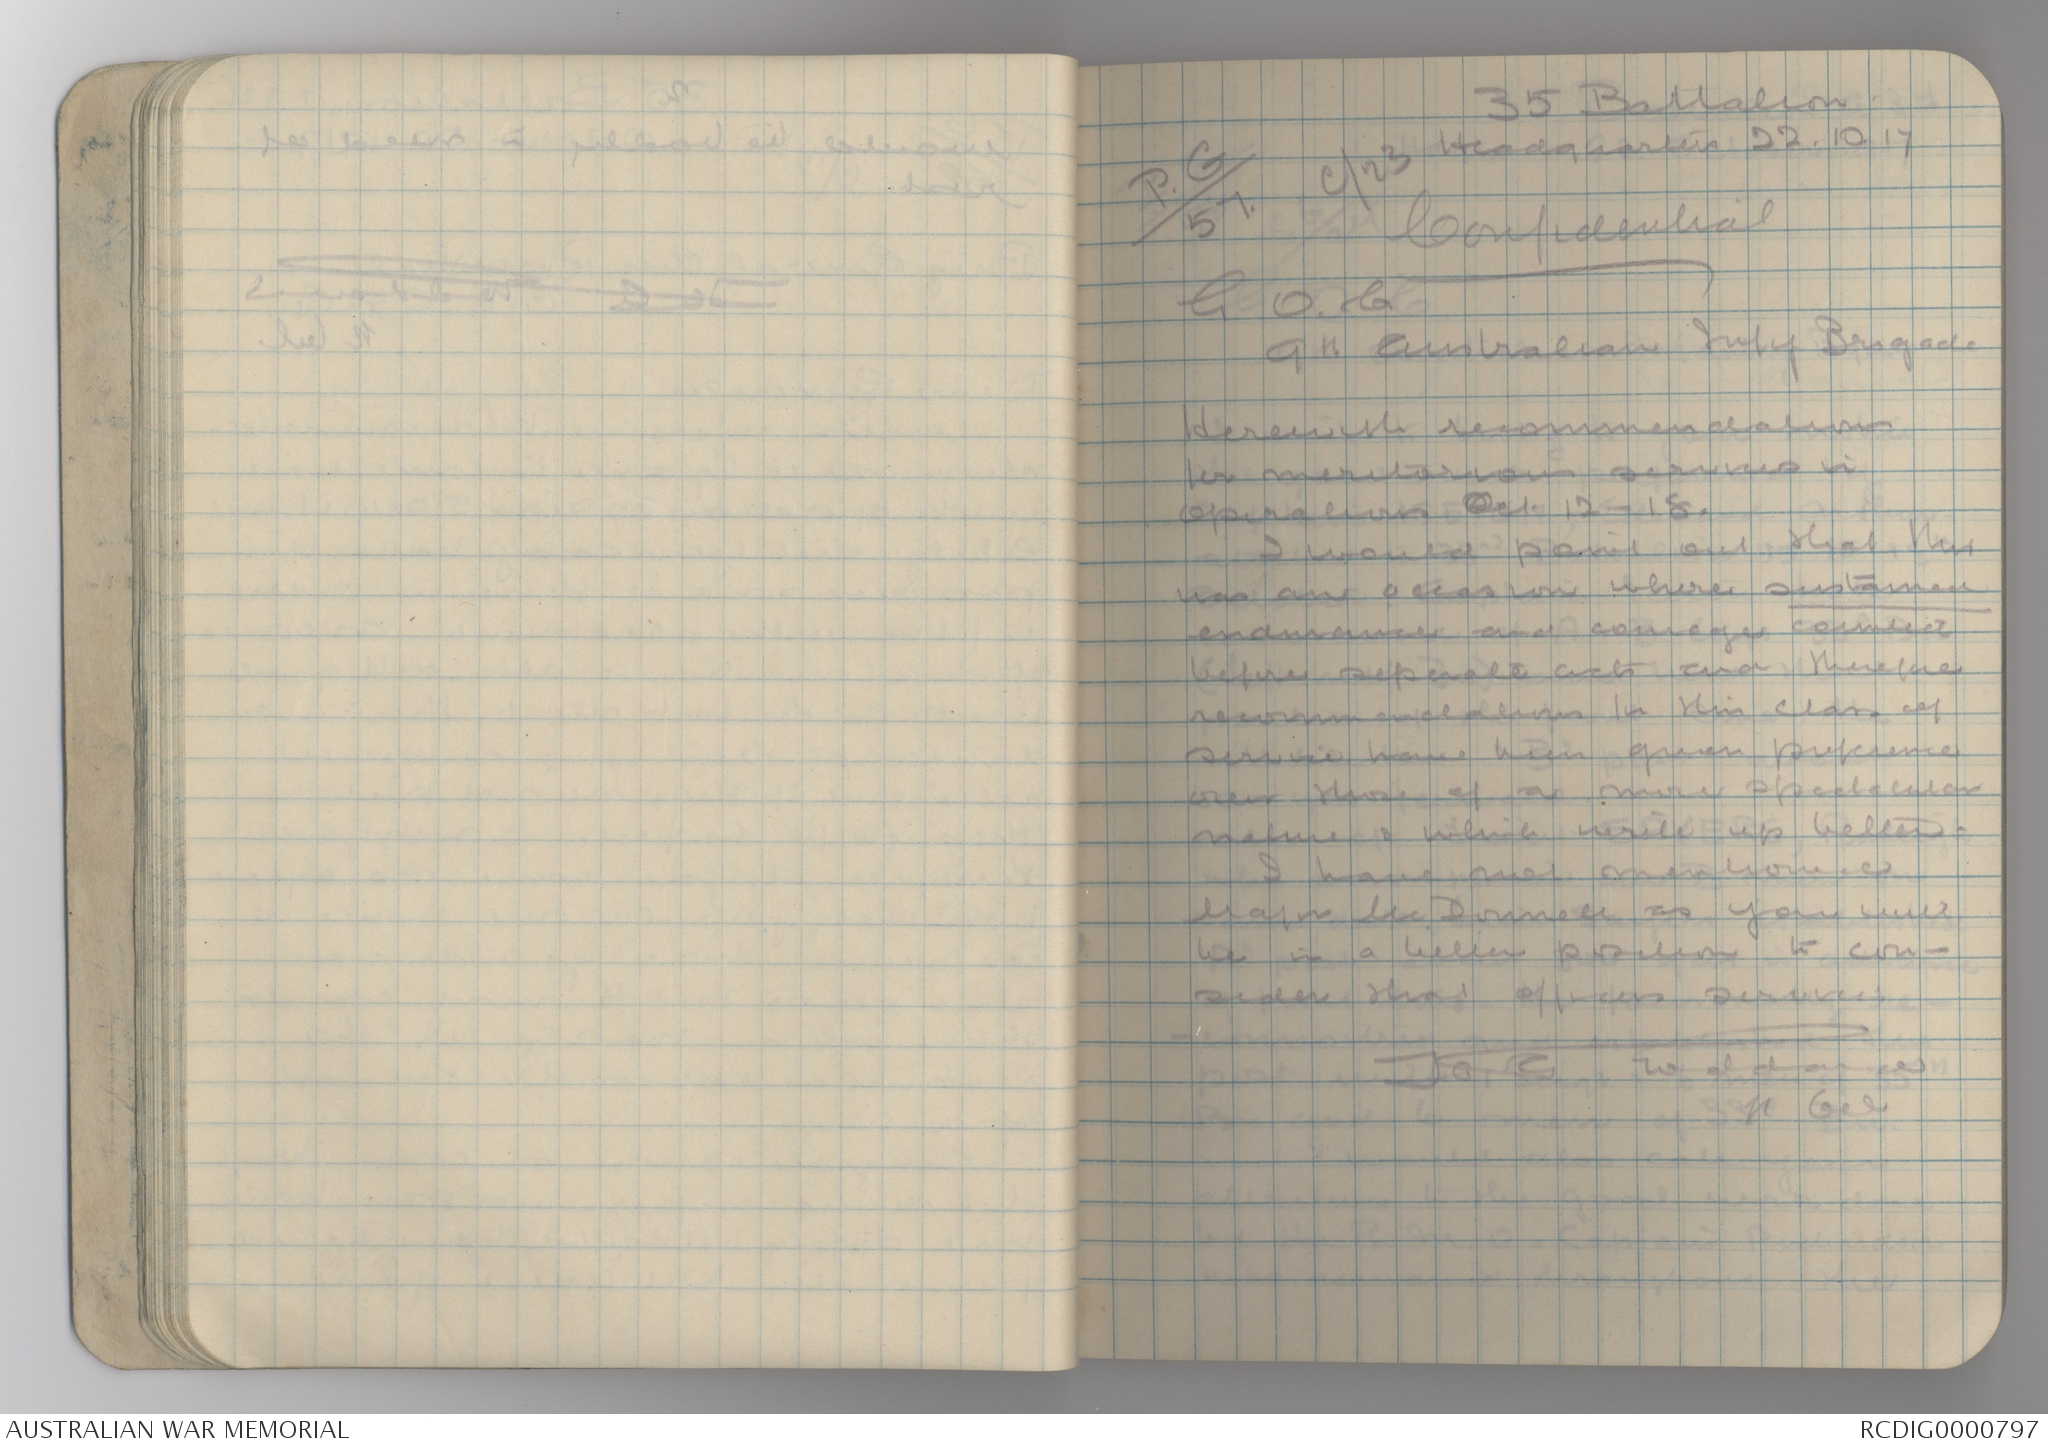 35 Battalion
Headquarters 22.10.17
P.G/57. C/123
Confidential
G. O. C.
9th Australian Infy Brigade
Herewith recommendations
for meritorious services in
operations Oct. 12-18.
I would point out that this
was an occasion where sustained
endurance and courage counted
before separate acts and therefore
recommendations in this class of
service have been given preference
over those of a more spectacular
nature & which write up better.
I have not mentioned
Major McDonnell as you will
be in a better position to con-
sider that officers services
Goddard
Lt Col
AUSTRALIAN WAR MEMORIAL
RCDIG0000797